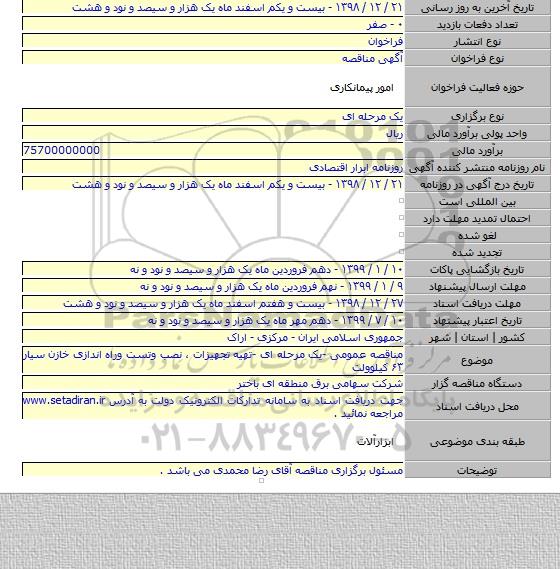 تاریخ آخرین به روز رسانی ۲۱ / ۱۲ / ۱۳۹۸ - بیست و یکم اسفند ماه یک هزار و سیصد و نود و هشت
تعداد دفعات بازدید ۰ - صفر
نوع انتشار فراخوان
نوع فراخوان آگهی مناقصه
حوزه فعالیت فراخوان امور پیمانکاری
نوع برگزاری یک مرحله ای
واحد پولی برآورد مالی ریال
برآورد مالی 75700000000
نام روزنامه منتشر کننده آگهی روزنامه ابرار اقتصادی
تاریخ درج آگهی در روزنامه ۲۱ / ۱۲ / ۱۳۹۸ - بیست و یکم اسفند ماه یک هزار و سیصد و نود و هشت
بین المللی است
احتمال تمدید مهلت دارد
لغو شده
تجدید شده
تاریخ بازگشایی پاکات ۱۰ / ۱ / ۱۳۹۹ - دهم فروردین ماه یک هزار و سیصد و نود و نه
مهلت ارسال پیشنهاد ۹ / ۱ / ۱۳۹۹ - نهم فروردین ماه یک هزار و سیصد و نود و نه
مهلت دریافت اسناد ۲۷ / ۱۲ / ۱۳۹۸ - بیست و هفتم اسفند ماه یک هزار و سیصد و نود و هشت
تاریخ اعتبار پیشنهاد ۱۰ / ۷ / ۱۳۹۹ - دهم مهر ماه یک هزار و سیصد و نود و نه
کشور | استان | شهر جمهوری اسلامی ایران - مرکزی - اراک
موضوع مناقصه عمومی -یک مرحله ای -تهیه تجهیزات ، نصب وتست وراه اندازی خازن سیار
۶۳ کیلوولت
دستگاه مناقصه گزار شرکت سهامی برق منطقه ای باختر
محل دریافت اسناد جهت دریافت اسناد به سامانه تدارکات الکترونیک دولت به آدرس www.setadiran.ir
مراجعه نمائید .
طبقه بندی موضوعی ابزارآلات
توضیحات مسئول برگزاری مناقصه آقای رضا محمدی می باشد .
۰۲۱-۸۸۳۴۹۶۷۰-۵